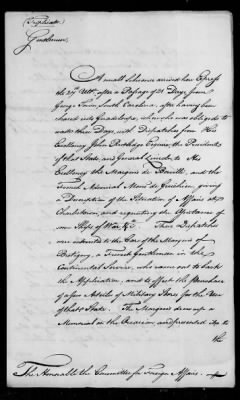 (Triplicate)
Gentlemen,
A small Schooner arrived here Express
the 27th Ulto. after a Passage of 21 Days from
George Town, South Carolina, after having been
chased into Guadeloupe, where she was obliged to
wait three Days, with Dispatches from His
Excellency John Rutledge Esquire, the President
of that State, and General Lincoln, to His
Excellency the Marquis de Bouillé, and the
French Admiral Monsr. de Guichen, giving
a Description of the Situation of Affairs at
Charlestown, and requesting the Assistance of
some Ships of War &c. These Dispatches
were intrusted to the Care of the Marquis of
Bretigny, a French Gentleman in the
Continental Service, who came out to back
the Application, and to effect the Purchase
of a few Articles of Military Stores for the Use
of that State. The Marquis drew up a
Memorial on the Occasion, and presented it to
the
The Honorable the Committee for Foreign Affairs.